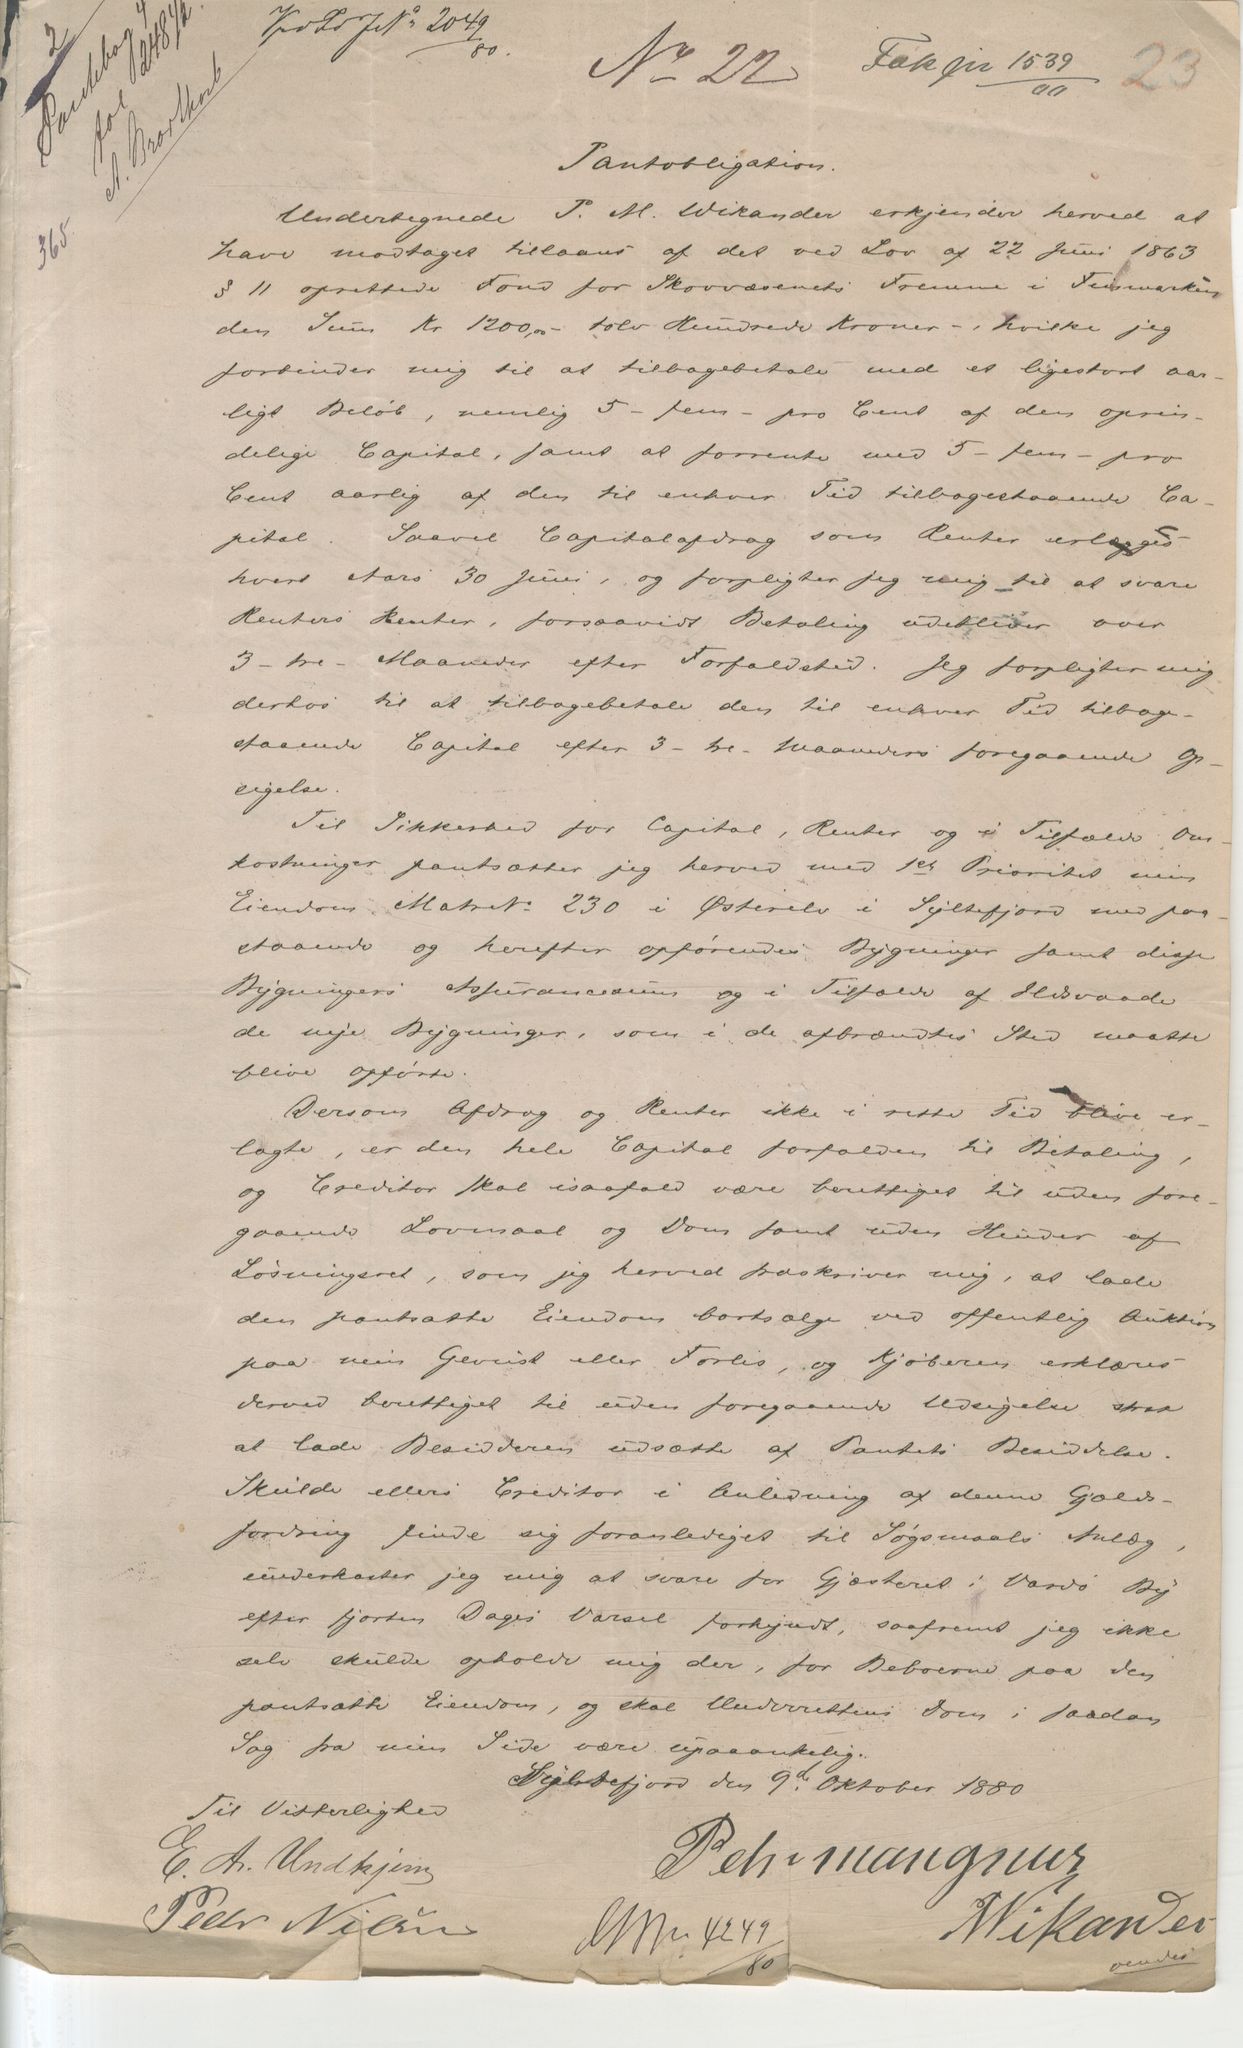 2
Pantebog 4
fol 248 1/2
A. Brodtkorb
365
J No 2049/80.
No 22
1539/00
23
Pantobligation.
Undertegnede P. M. Wikander erkjender herved at
have modtaget tillaans af det ved Lov af 22 Juni 1863
§ 11 oprettede Fond for Skovvæsenets Fremme i Finmarken
den Sum Kr 1200,00 - tolv Hundrede Kroner -, hvilke jeg
forbinder mig til at tilbagebetale med et ligestort aar-
ligt Beløb, nemlig 5 - fem - pro Cent af den oprin-
delige Capital, samt at forrente med 5 - fem - pro
Cent aarlig af den til enhver Tid tilbagestaaende Ca-
pital. Saavel Capitalafdrag som Renter erlægges
hvert Aars 30 Juni, og forpligter jeg mig til at svare
Renters Renter, forsaavidt Betaling udebliver over
3 - tre - Maaneder efter Forfaldstid. Jeg forpligter mig
derhos til at tilbagebetale den til enhver Tid tilbage-
staaende Capital efter 3 - tre - Maaneders foregaaende Op-
sigelse.
Til Sikkerhed for Capital, Renter og i Tilfælde Om-
kostninger pantsætter jeg herved med 1ste Prioritet min
Eiendom Matr No 230 i Østerelv i Syltefjord med paa-
staaende og herefter opførendes Bygninger samt disse
Bygningers Assurancesum og i Tilfælde af Ildsvaade
de nye Bygninger, som i de afbrændtes Sted maatte
blive opførte.
Dersom Afdrag og Renter ikke i rette Tid blive er-
lagte, er den hele Capital forfalden til Betaling,
og Creditor skal isaafald være berettiget til uden fore-
gaaende Lovmaal og Dom samt uden Hinder af
Løsningsret, som jeg herved fraskriver mig, at lade
den pantsatte Eiendom bortsælge ved offentlig Auktion
paa min Gevinst eller Forlis, og Kjøberen erklæres
derved berettiget til uden foregaaende Udsigelse strax
at lade Besidderen udsætte af Pantets Besiddelse.
Skulde ellers Creditor i Anledning af denne Gjælds-
fordring finde sig foranlediget til Søgsmaals Anlæg,
underkaster jeg mig at svare for Gjæsteret i Vardø By
efter fjorten Dages Varsel forkyndt, saafremt jeg ikke
selv skulde opholde mig der, for Beboerne paa den
pantsatte Eiendom, og skal Underrettens Dom i saadan
Sag fra min Side være upaaankelig.
Syltefjord den 9de Oktober 1880
Til Vitterlighed
E. A. Undhjem
Peder Nilsen
Pehr mangnuz
Wikander
4249/80
vendes